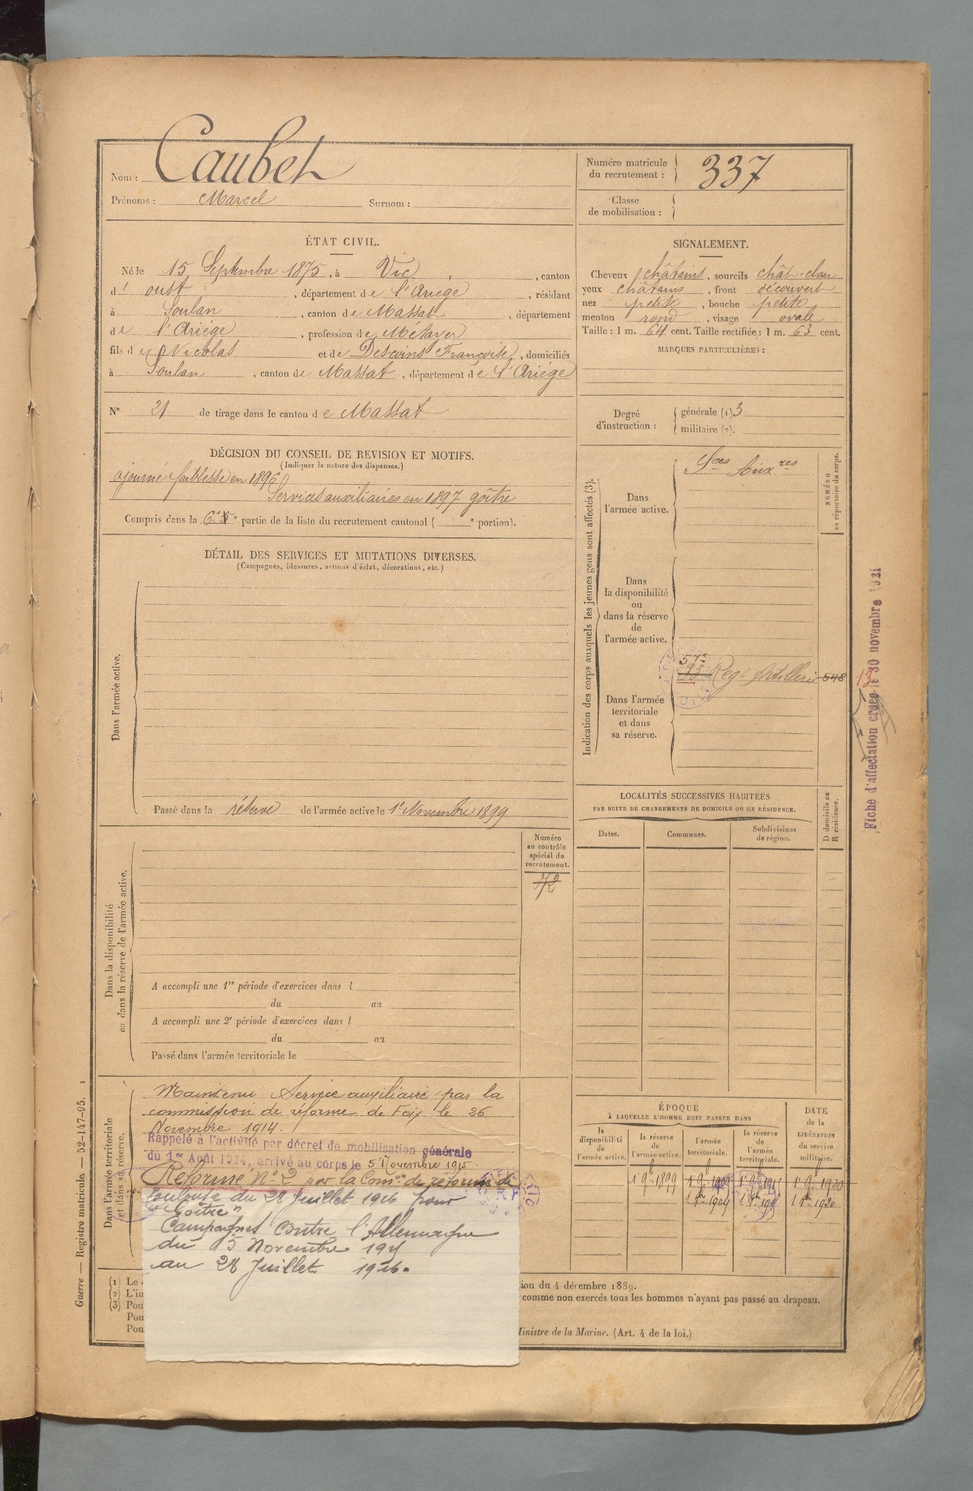 Nom : Caubet
Prénoms : Marcel Surnom :
Numéro matricule du recrutement : 337
Classe de mobilisation :
ÉTAT CIVIL.
Né le 15 Septembre 1875, à Vic, canton
d' oust, département de l'Ariège, résidant
à Soulan, canton de Massat, département
de l'Ariège, profession de Métayer
fils de Nicolas et de Descoins Françoise, domiciliés
à Soulan, canton de Massat, département de l'Ariège
N° 21 de tirage dans le canton de Massat
SIGNALEMENT.
Cheveux châtains, sourcils chât-clair
yeux châtains, front découvert
nez petit, bouche petite
menton rond, visage ovale
Taille : 1 m. 64 cent. Taille rectifiée : 1 m. 63 cent.
MARQUES PARTICULIÈRES :
Degré d'instruction : générale (1) 3
militaire (2).
DÉCISION DU CONSEIL DE REVISION ET MOTIFS.
(Indiquer la nature des dispenses.)
ajourné faiblesse en 1896
Services auxiliaires en 1897 goître
Compris dans la 6e partie de la liste du recrutement cantonal ( e portion).
DÉTAIL DES SERVICES ET MUTATIONS DIVERSES.
(Campagnes, blessures, actions d'éclat, décorations, etc.)
Dans l'armée active.
Passé dans la réserve de l'armée active le 1er Novembre 1899
Indication des corps auxquels les jeunes gens sont affectés (3).
NUMÉRO au répertoire du corps.
Dans l'armée active.
Sces Auxres
Dans la disponibilité ou dans la réserve de l'armée active.
Dans l'armée territoriale et dans sa réserve.
57e
Regt Artillerie 548
Fiche d'affectation créée le 30 novembre 1921
LOCALITÉS SUCCESSIVES HABITÉES
PAR SUITE DE CHANGEMENTS DE DOMICILE OU DE RÉSIDENCE.
Dates. Communes. Subdivisions de région. D domicile ou R résidence.
Dans la disponibilité ou dans la réserve de l'armée active.
Numéro au contrôle spécial du recrutement.
72
A accompli une 1re période d'exercices dans l
du au
A accompli une 2e période d'exercices dans l
du au
Passé dans l'armée territoriale le
Dans l'armée territoriale et dans sa réserve.
Maintenu Service auxiliaire par la
commission de réforme de Foix le 26
Novembre 1914.
Rappelé à l'activité par décret de mobilisation générale
du 1er Août 1914, arrivé au corps le 5 Novembre 1915
Réformé N° 2 par la Comon de réforme de
Toulouse du 28 Juillet 1916 pour
"Goître"
Campagnes Contre l'Allemagne
du 5 Novembre 191
au 28 Juillet 1916.
ÉPOQUE
À LAQUELLE L'HOMME DOIT PASSER DANS
la disponibilité de l'armée active. la réserve de l'armée active. l'armée territoriale. la réserve de l'armée territoriale.
DATE de la LIBÉRATION du service militaire.
1 9bre 1899 1 9bre 1909 1 9bre 1915 1 9bre 1920
(1) Le
(2) L'in
(3) Pou
Pou
Pou
ion du 4 décembre 1889.
comme non exercés tous les hommes n'ayant pas passé au drapeau.
Ministre de la Marine. (Art. 4 de la loi.)
Guerre — Registre matricule — 52-147-95. 1